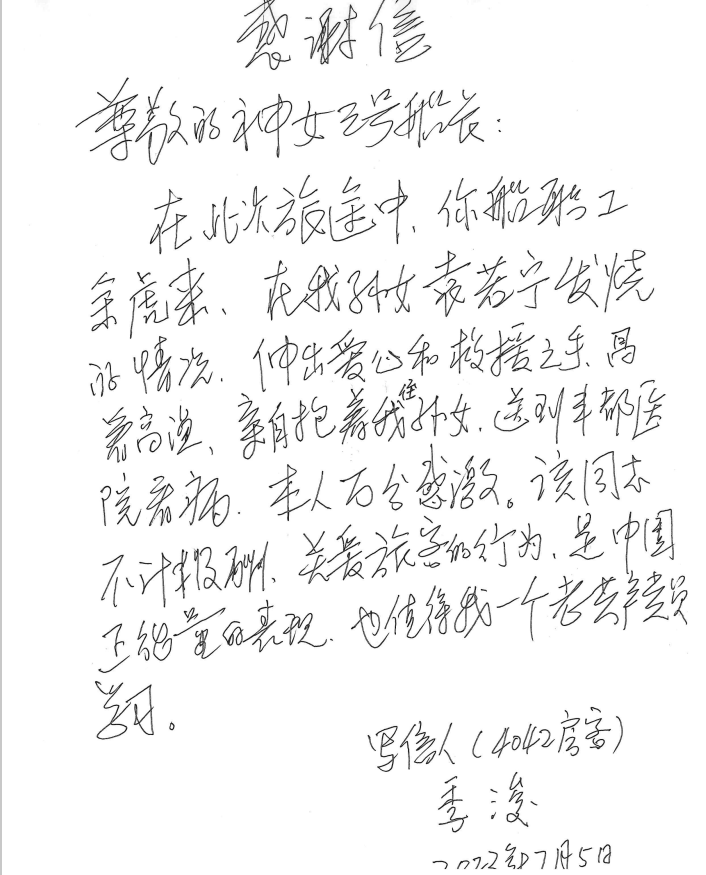 感谢信
尊敬的神女2号船长：
在此次旅途中、你船职工
余虎来、在我孙女袁若宁发烧
的情况、伸出爱心和救援之手、冒
着高温、亲自抱着我住孙女、送到丰都医
院看病、本人万分感激。该同志
不计报酬、关爱旅客的行为、是中国
正能量的表现、也值得我一个老共产党员
学习。
写信人（4042房客）
季浚
2022年7月5日